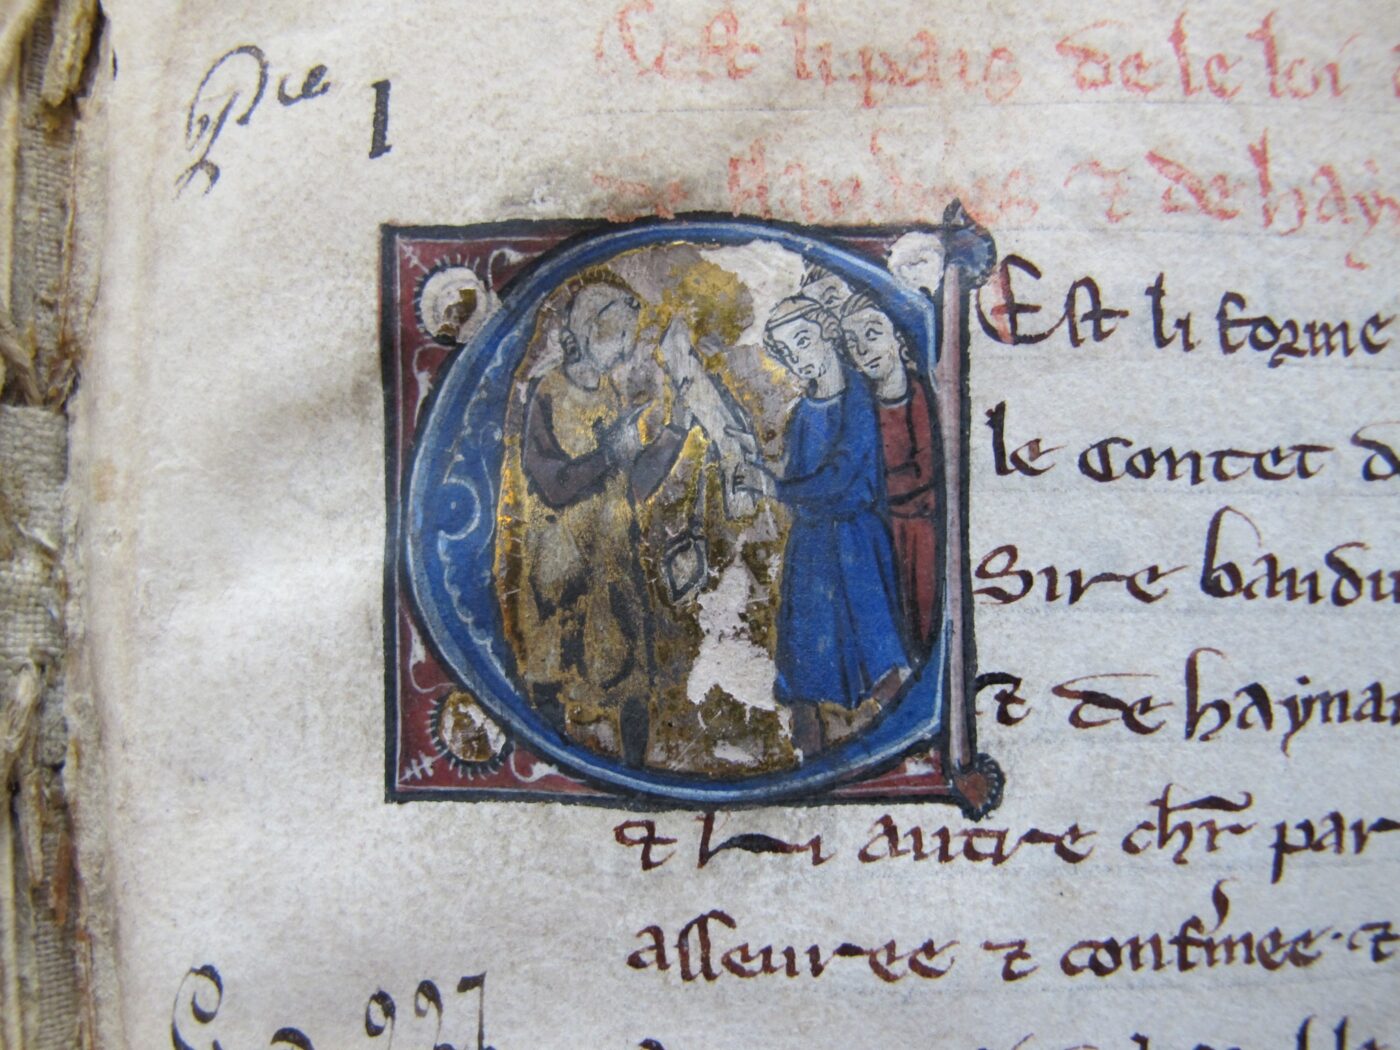 Cest li pais de le loi
de flandres ⁊ de hay
I
Est li forme
le contet d
Sire baudu
⁊ de haynau
⁊ li autre chr par
asseuree ⁊ confmee · ⁊